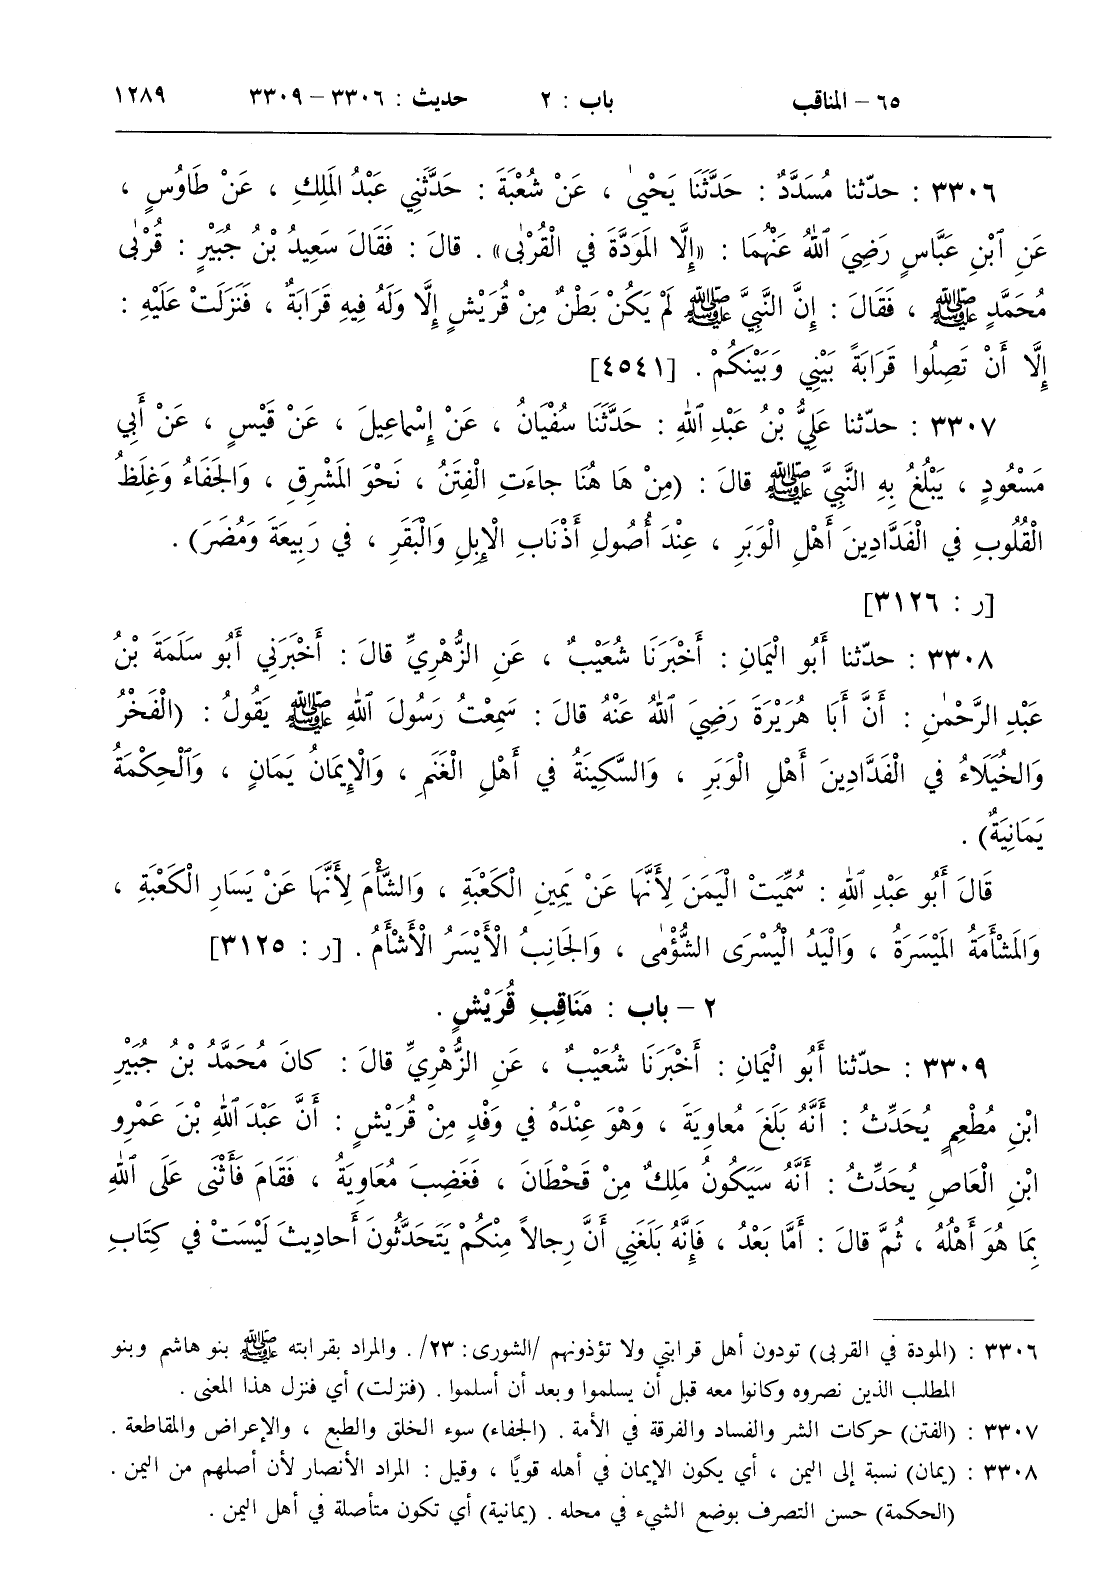 ٦٥ - المناقب باب : ٢ حديث : ٣٣٠٦ - ٣٣٠٩ ١٢٨٩
٣٣٠٦ : حدّثنا مُسَدَّدٌ : حَدَّثَنَا يَحْيىٰ ، عَنْ شُعْبَةَ : حَدَّثَنِي عَبْدُ المَلِكِ ، عَنْ طَاوُسٍ ،
عَنِ ٱبْنِ عَبَّاسٍ رَضِيَ ٱللهُ عَنْهُمَا : «إِلَّا المَوَدَّةَ فِي الْقُرْبٰى» . قالَ : فَقَالَ سَعِيدُ بْنُ جُبَيْرٍ : قُرْبٰى
مُحَمَّدٍ ﷺ ، فَقَالَ : إِنَّ النَّبِيَّ ﷺ لَمْ يَكُنْ بَطْنٌ مِنْ قُرَيْشٍ إِلَّا وَلَهُ فِيهِ قَرَابَةٌ ، فَنَزَلَتْ عَلَيْهِ :
إِلَّا أَنْ تَصِلُوا قَرَابَةً بَيْنِي وَبَيْنَكُمْ . [٤٥٤١]
٣٣٠٧ : حدّثنا عَلِيُّ بْنُ عَبْدِ ٱللهِ : حَدَّثَنَا سُفْيَانُ ، عَنْ إِسْماعِيلَ ، عَنْ قَيْسٍ ، عَنْ أَبِي
مَسْعُودٍ ، يَبْلُغُ بِهِ النَّبِيَّ ﷺ قالَ : (مِنْ هَا هُنَا جاءَتِ الْفِتَنُ ، نَحْوَ المَشْرِقِ ، وَالجَفَاءُ وَغِلَظُ
الْقُلُوبِ فِي الْفَدَّادِينَ أَهْلِ الْوَبَرِ ، عِنْدَ أُصُولِ أَذْنَابِ الْإِبِلِ وَالْبَقَرِ ، فِي رَبِيعَةَ وَمُضَرَ) .
[ر : ٣١٢٦]
٣٣٠٨ : حدّثنا أَبُو الْيَمَانِ : أَخْبَرَنَا شُعَيْبٌ ، عَنِ الزُّهْرِيِّ قالَ : أَخْبَرَنِي أَبُو سَلَمَةَ بْنُ
عَبْدِ الرَّحْمٰنِ : أَنَّ أَبَا هُرَيْرَةَ رَضِيَ ٱللهُ عَنْهُ قالَ : سَمِعْتُ رَسُولَ ٱللهِ ﷺ يَقُولُ : (الْفَخْرُ
وَالخُيَلَاءُ فِي الْفَدَّادِينَ أَهْلِ الْوَبَرِ ، وَالسَّكِينَةُ فِي أَهْلِ الْغَنَمِ ، وَالْإِيمَانُ يَمَانٍ ، وَٱلْحِكْمَةُ
يَمَانِيَةٌ) .
قَالَ أَبُو عَبْدِ ٱللهِ : سُمِّيَتْ الْيَمَنَ لِأَنَّهَا عَنْ يَمِينِ الْكَعْبَةِ ، وَالشَّأْمَ لِأَنَّهَا عَنْ يَسَارِ الْكَعْبَةِ ،
وَالمَشْأَمَةُ المَيْسَرَةُ ، وَالْيَدُ الْيُسْرَى الشُّؤْمٰى ، وَالجَانِبُ الْأَيْسَرُ الْأَشْأَمُ . [ر : ٣١٢٥]
٢ - باب : مَنَاقِبِ قُرَيْشٍ .
٣٣٠٩ : حدّثنا أَبُو الْيَمَانِ : أَخْبَرَنَا شُعَيْبٌ ، عَنِ الزُّهْرِيِّ قالَ : كانَ مُحَمَّدُ بْنُ جُبَيْرِ
ابْنِ مُطْعِمٍ يُحَدِّثُ : أَنَّهُ بَلَغَ مُعاوِيَةَ ، وَهْوَ عِنْدَهُ فِي وَفْدٍ مِنْ قُرَيْشٍ : أَنَّ عَبْدَ ٱللهِ بْنَ عَمْرِو
ابْنِ الْعَاصِ يُحَدِّثُ : أَنَّهُ سَيَكُونُ مَلِكٌ مِنْ قَحْطَانَ ، فَغَضِبَ مُعَاوِيَةُ ، فَقَامَ فَأَثْنٰى عَلَى ٱللهِ
بِمَا هُوَ أَهْلُهُ ، ثُمَّ قالَ : أَمَّا بَعْدُ ، فَإِنَّهُ بَلَغَنِي أَنَّ رِجالاً مِنْكُمْ يَتَحَدَّثُونَ أَحادِيثَ لَيْسَتْ فِي كِتَابِ
٣٣٠٦ : (المودة في القربى) تودون أهل قرابتي ولا تؤذونهم /الشورى: ٢٣/. والمراد بقرابته ﷺ بنو هاشم وبنو
المطلب الذين نصروه وكانوا معه قبل أن يسلموا وبعد أن أسلموا . (فنزلت) أي فنزل هذا المعنى .
٣٣٠٧ : (الفتن) حركات الشر والفساد والفرقة في الأمة . (الجفاء) سوء الخلق والطبع ، والإعراض والمقاطعة .
٣٣٠٨ : (يمان) نسبة إلى اليمن ، أي يكون الإيمان في أهله قويًا ، وقيل : المراد الأنصار لأن أصلهم من اليمن .
(الحكمة) حسن التصرف بوضع الشيء في محله . (يمانية) أي تكون متأصلة في أهل اليمن .